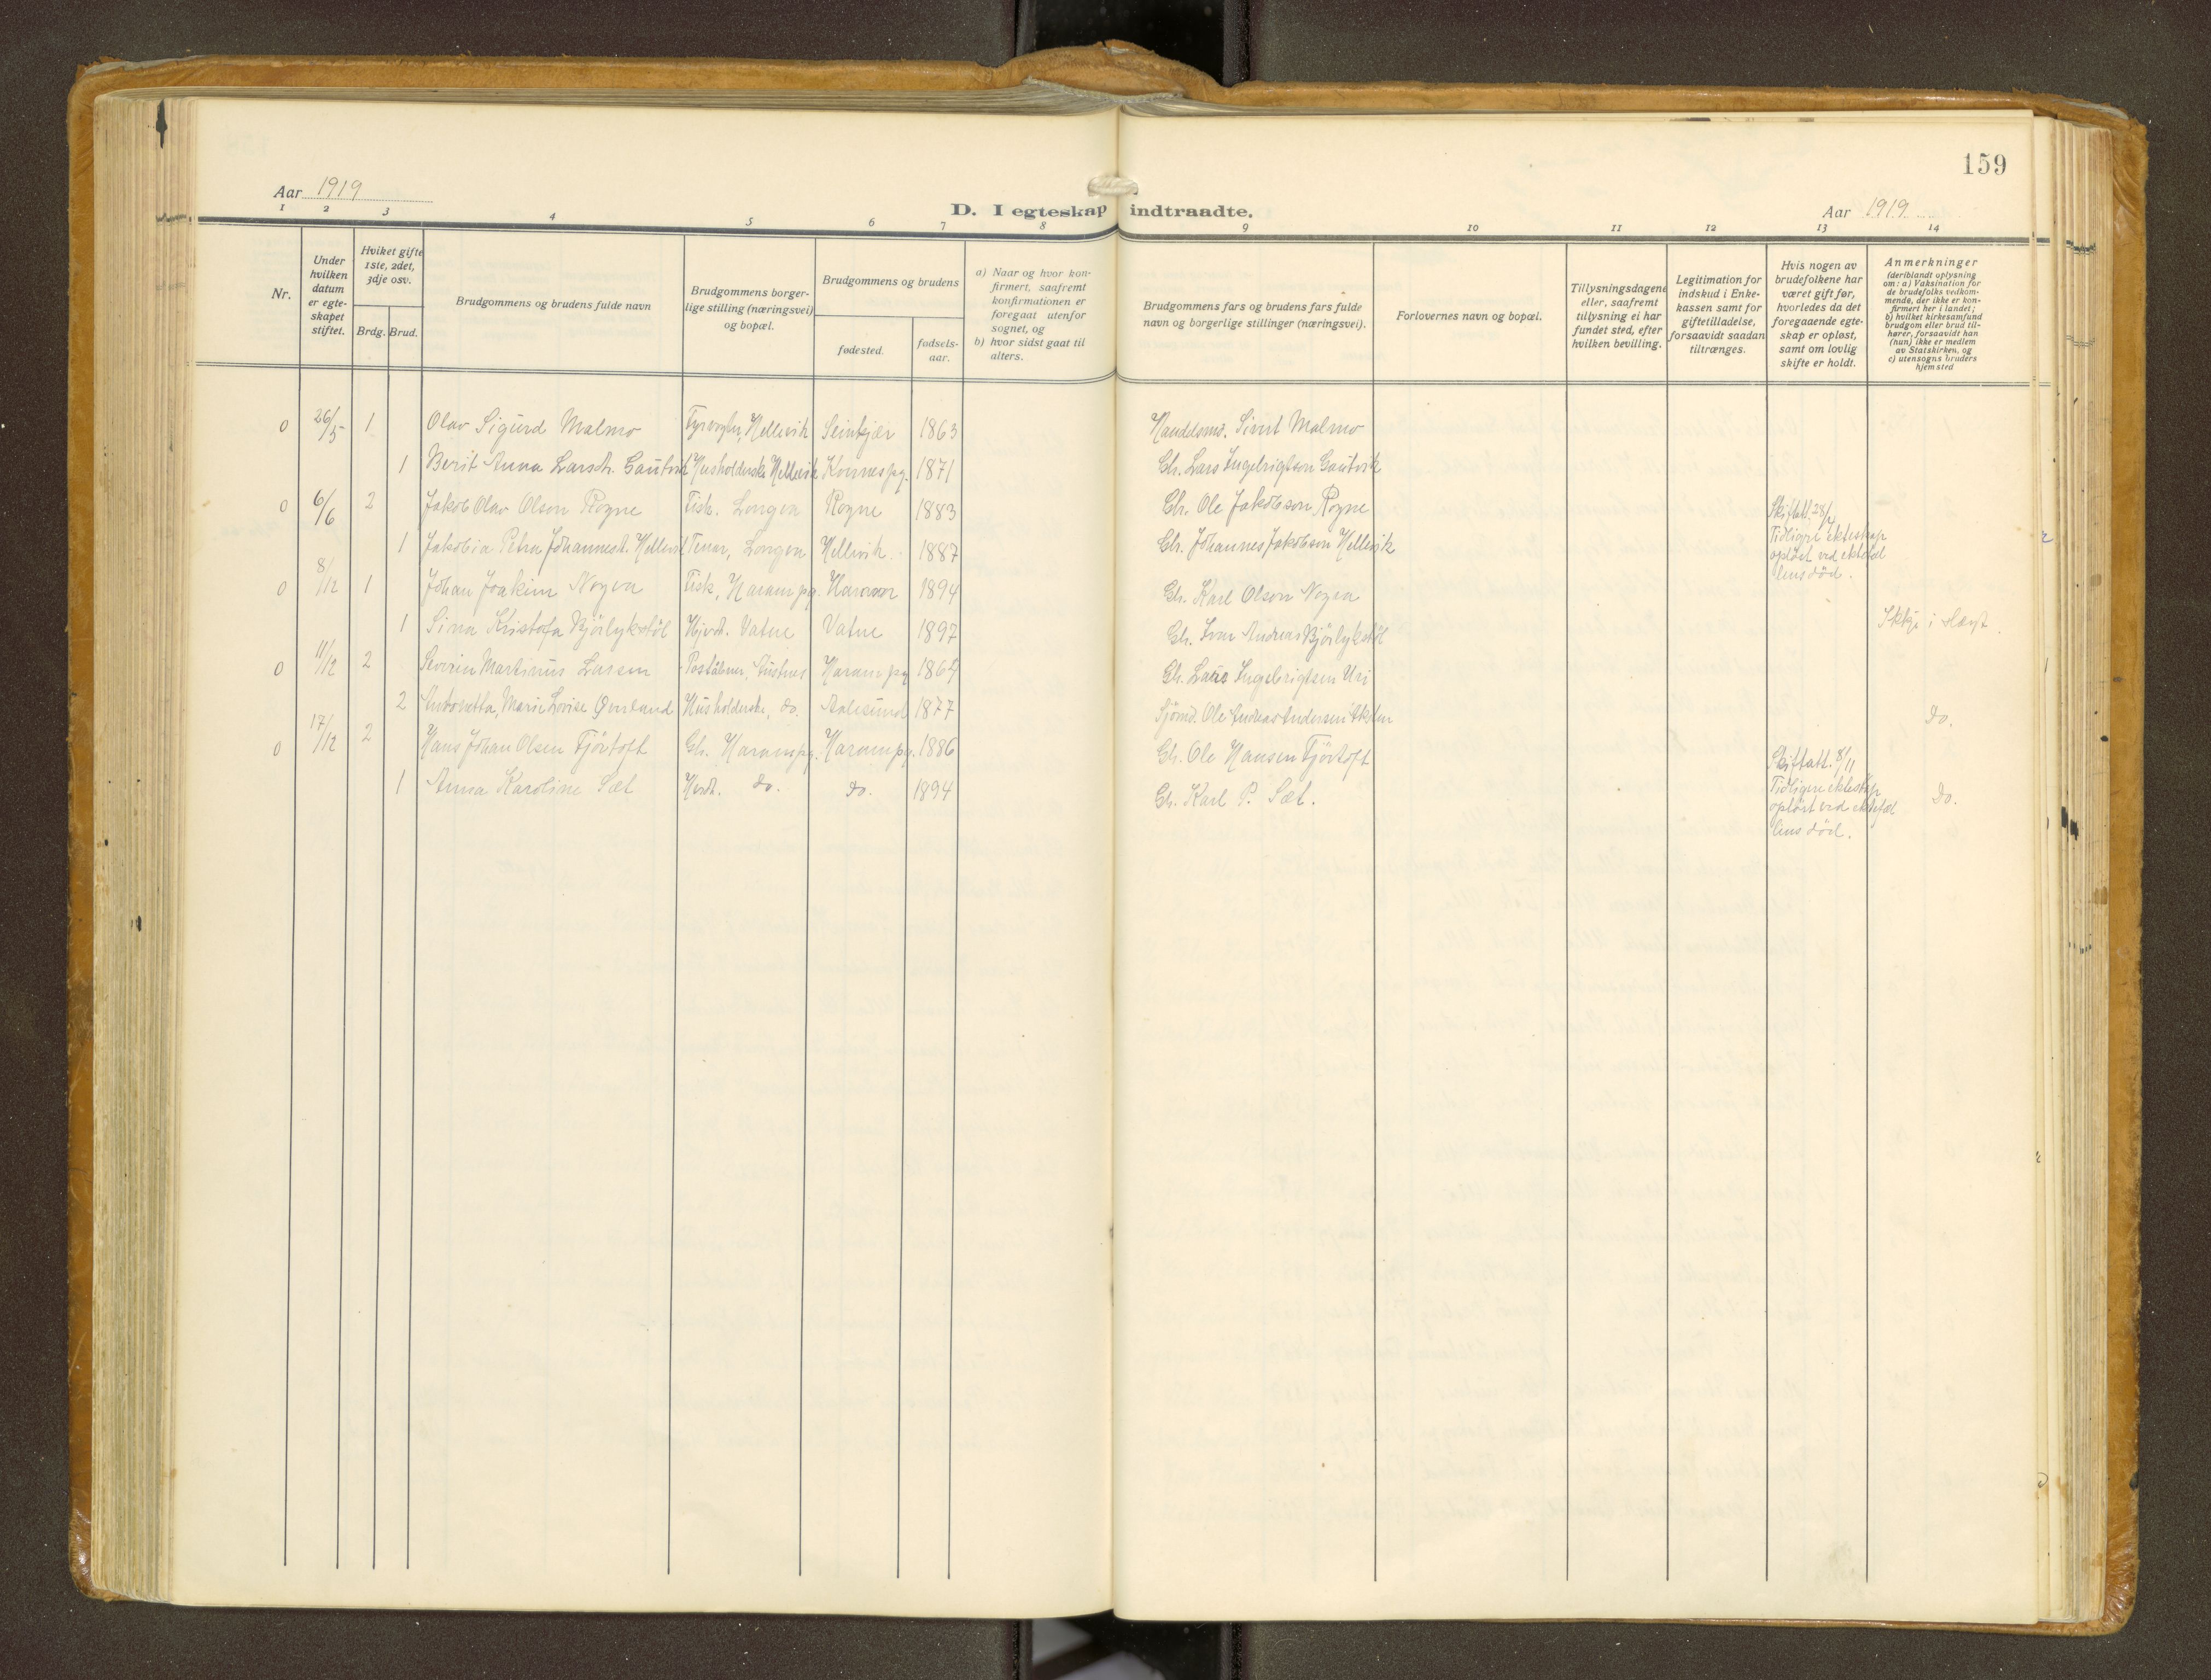 159
Aar 1919
D. I egteskap indtraadte.
Aar 1919
1 2 3 4 5 6 7 8 9 10 11 12 13 14
Nr.
Under hvilken datum er egteskapet stiftet.
Hviket gifte 1ste, 2det, 3dje osv.
Brdg. Brud.
Brudgommens og brudens fulde navn
Brudgommens borgerlige stilling (næringsvei) og bopæl.
Brudgommens og brudens
fødested.
fødselsaar.
a) Naar og hvor konfirmert, saafremt konfirmationen er foregaat utenfor sognet, og
b) hvor sidst gaat til alters.
Brudgommens fars og brudens fars fulde navn og borgerlige stillinger (næringsvei).
Forlovernes navn og bopæl.
Tillysningsdagene eller, saafremt tillysning ei har fundet sted, efter hvilken bevilling.
Legitimation for indskud i Enkekassen samt for giftetilladelse, forsaavidt saadan tiltrænges.
Hvis nogen av brudefolkene har været gift før, hvorledes da det foregaaende egteskap er opløst, samt om lovlig skifte er holdt.
Anmerkninger
(deriblandt oplysning om: a) Vaksination for de brudefolks vedkommende, der ikke er konfirmert her i landet; b) hvilket kirkesamfund brudgom eller brud tilhører, forsaavidt han (hun) ikke er medlem av Statskirken, og c) utensogns bruders hjemsted
0 26/5 1 Olav Sigurd Malmo Fyrvogter, Hellevik Seinkjær 1863 Handelsm. Sivert Malmo
1 Berit Anna Larsdt. Gautvik Husholderske Hellevik Kornes pg. 1871 Gb. Lars Ingebrigtson Gautvik
0 6/6 2 Jakob Olav Olson Rogne Fisk. Longva Rogne 1883 Gbr. Ole Jakobson Rogne
Skiftatt. 28/4
1 Jakobia Petra Johannesdt. Hellevik Tenar, Longva Hellevik 1887 Gb. Johannes Jakobson Hellevik
Tidligere ekteskap
opløst ved ektefæl
lens død.
0 8/12 1 Johan Joakim Nogva Fisk, Haram pg. Haram 1894 Gb. Karl Olson Nogva
1 Sina Kristofa Bjørlykstøl Hjvdt. Vatne Vatne 1897 Gb. Ivar Andreas Bjørlykstøl Ikkje i slægt.
0 11/12 2 Severin Martinus Larsen Poståbner, Austnes Haram pg 1864 Gb. Lars Ingebrigtsen Uri
2 Antonetta, Marie Lovise Overland Husholderske, do. Aalesund 1877 Sjömd. Ole Andreas Andersen do.
0 17/12 2 Hans Johan Olsen Fjörtoft Gb. Haram pg. Haram pg. 1886 Gb. Ole Hansen Fjörtoft
Skiftatt. 8/11
1 Anna Karoline Sæt Hvdt. do. do. 1894 Gb. Karl P. Sæt. do.
Tidligere ekteskap
opløst ved ektefæl
lens død.